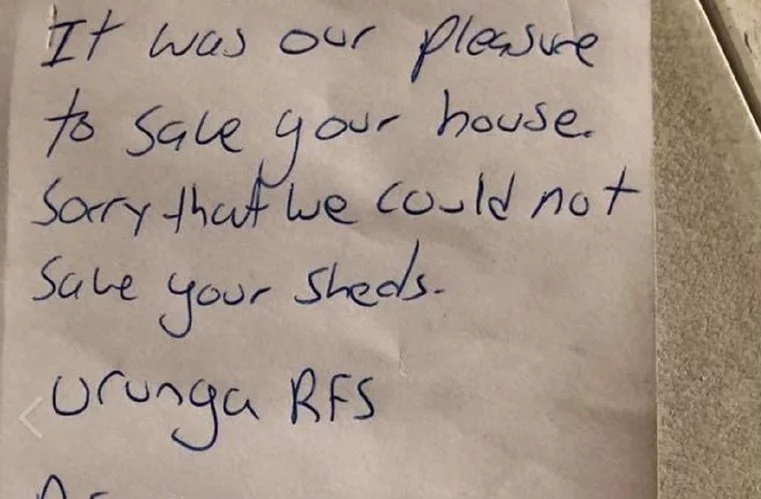 It was our pleasure
to save your house.
Sorry that we could not
save your sheds.
Urunga RFS